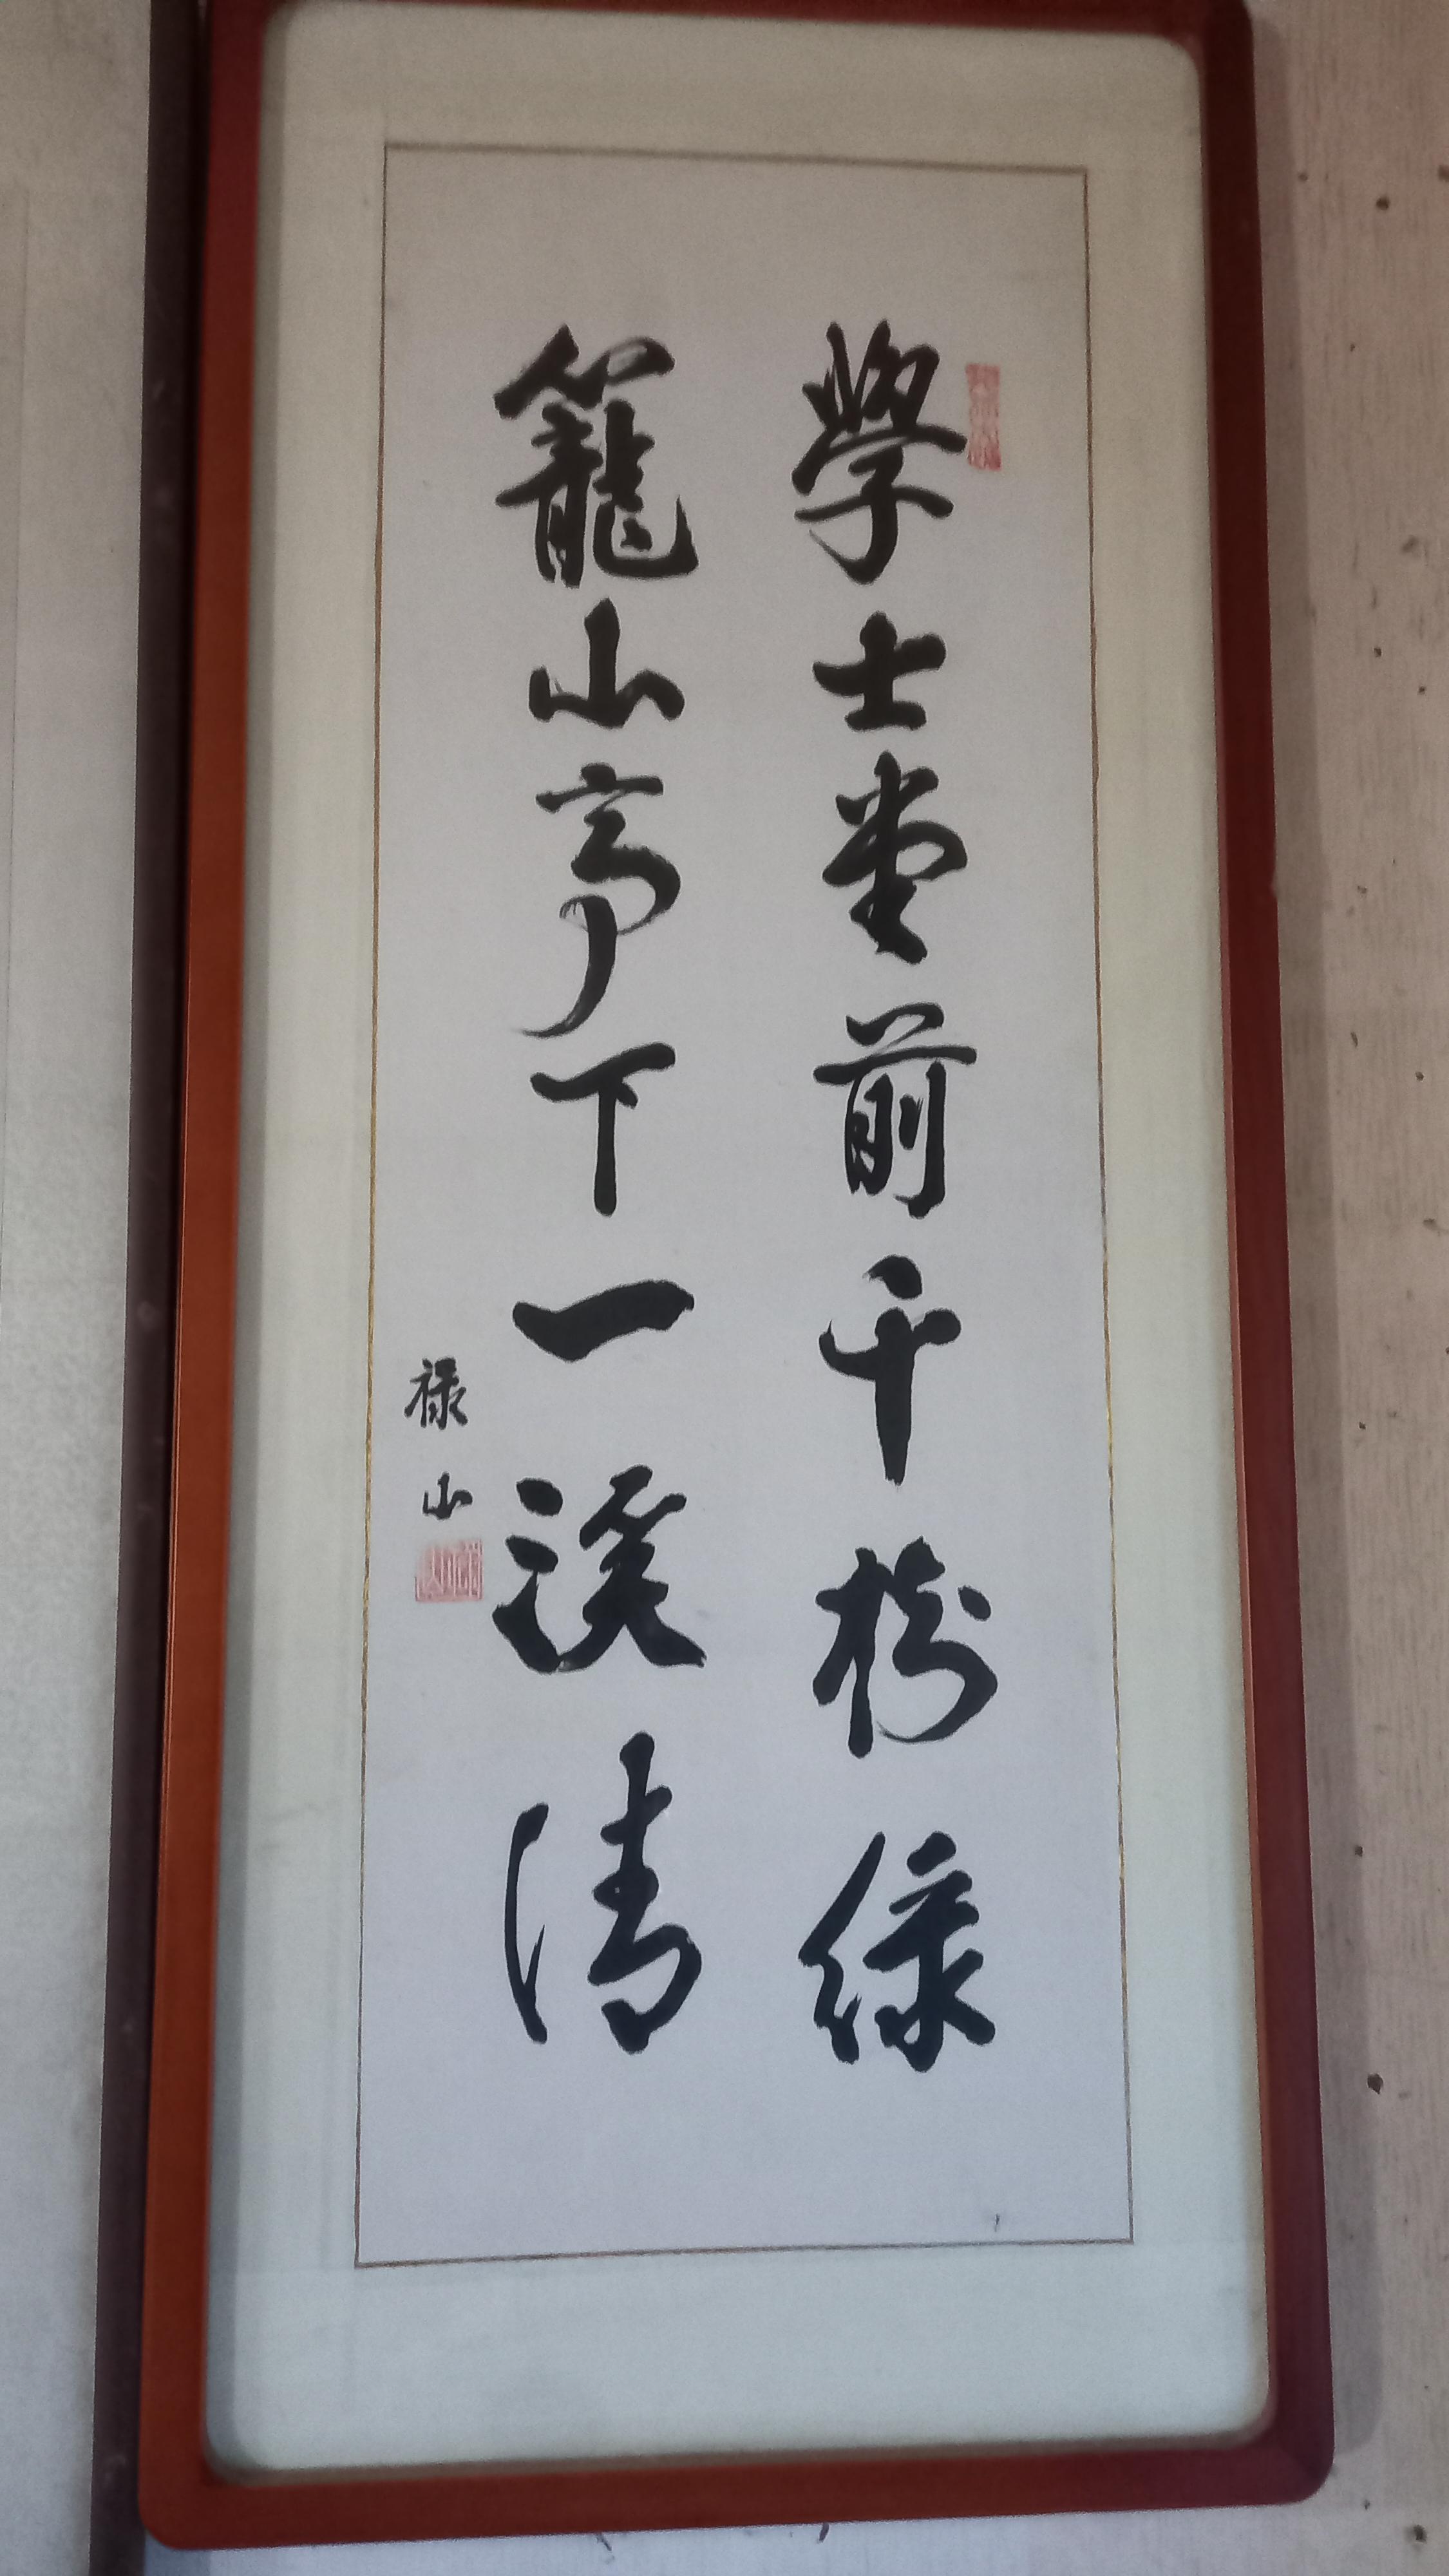 學士堂前千樹綠
籠山亭下一溪清
禄山